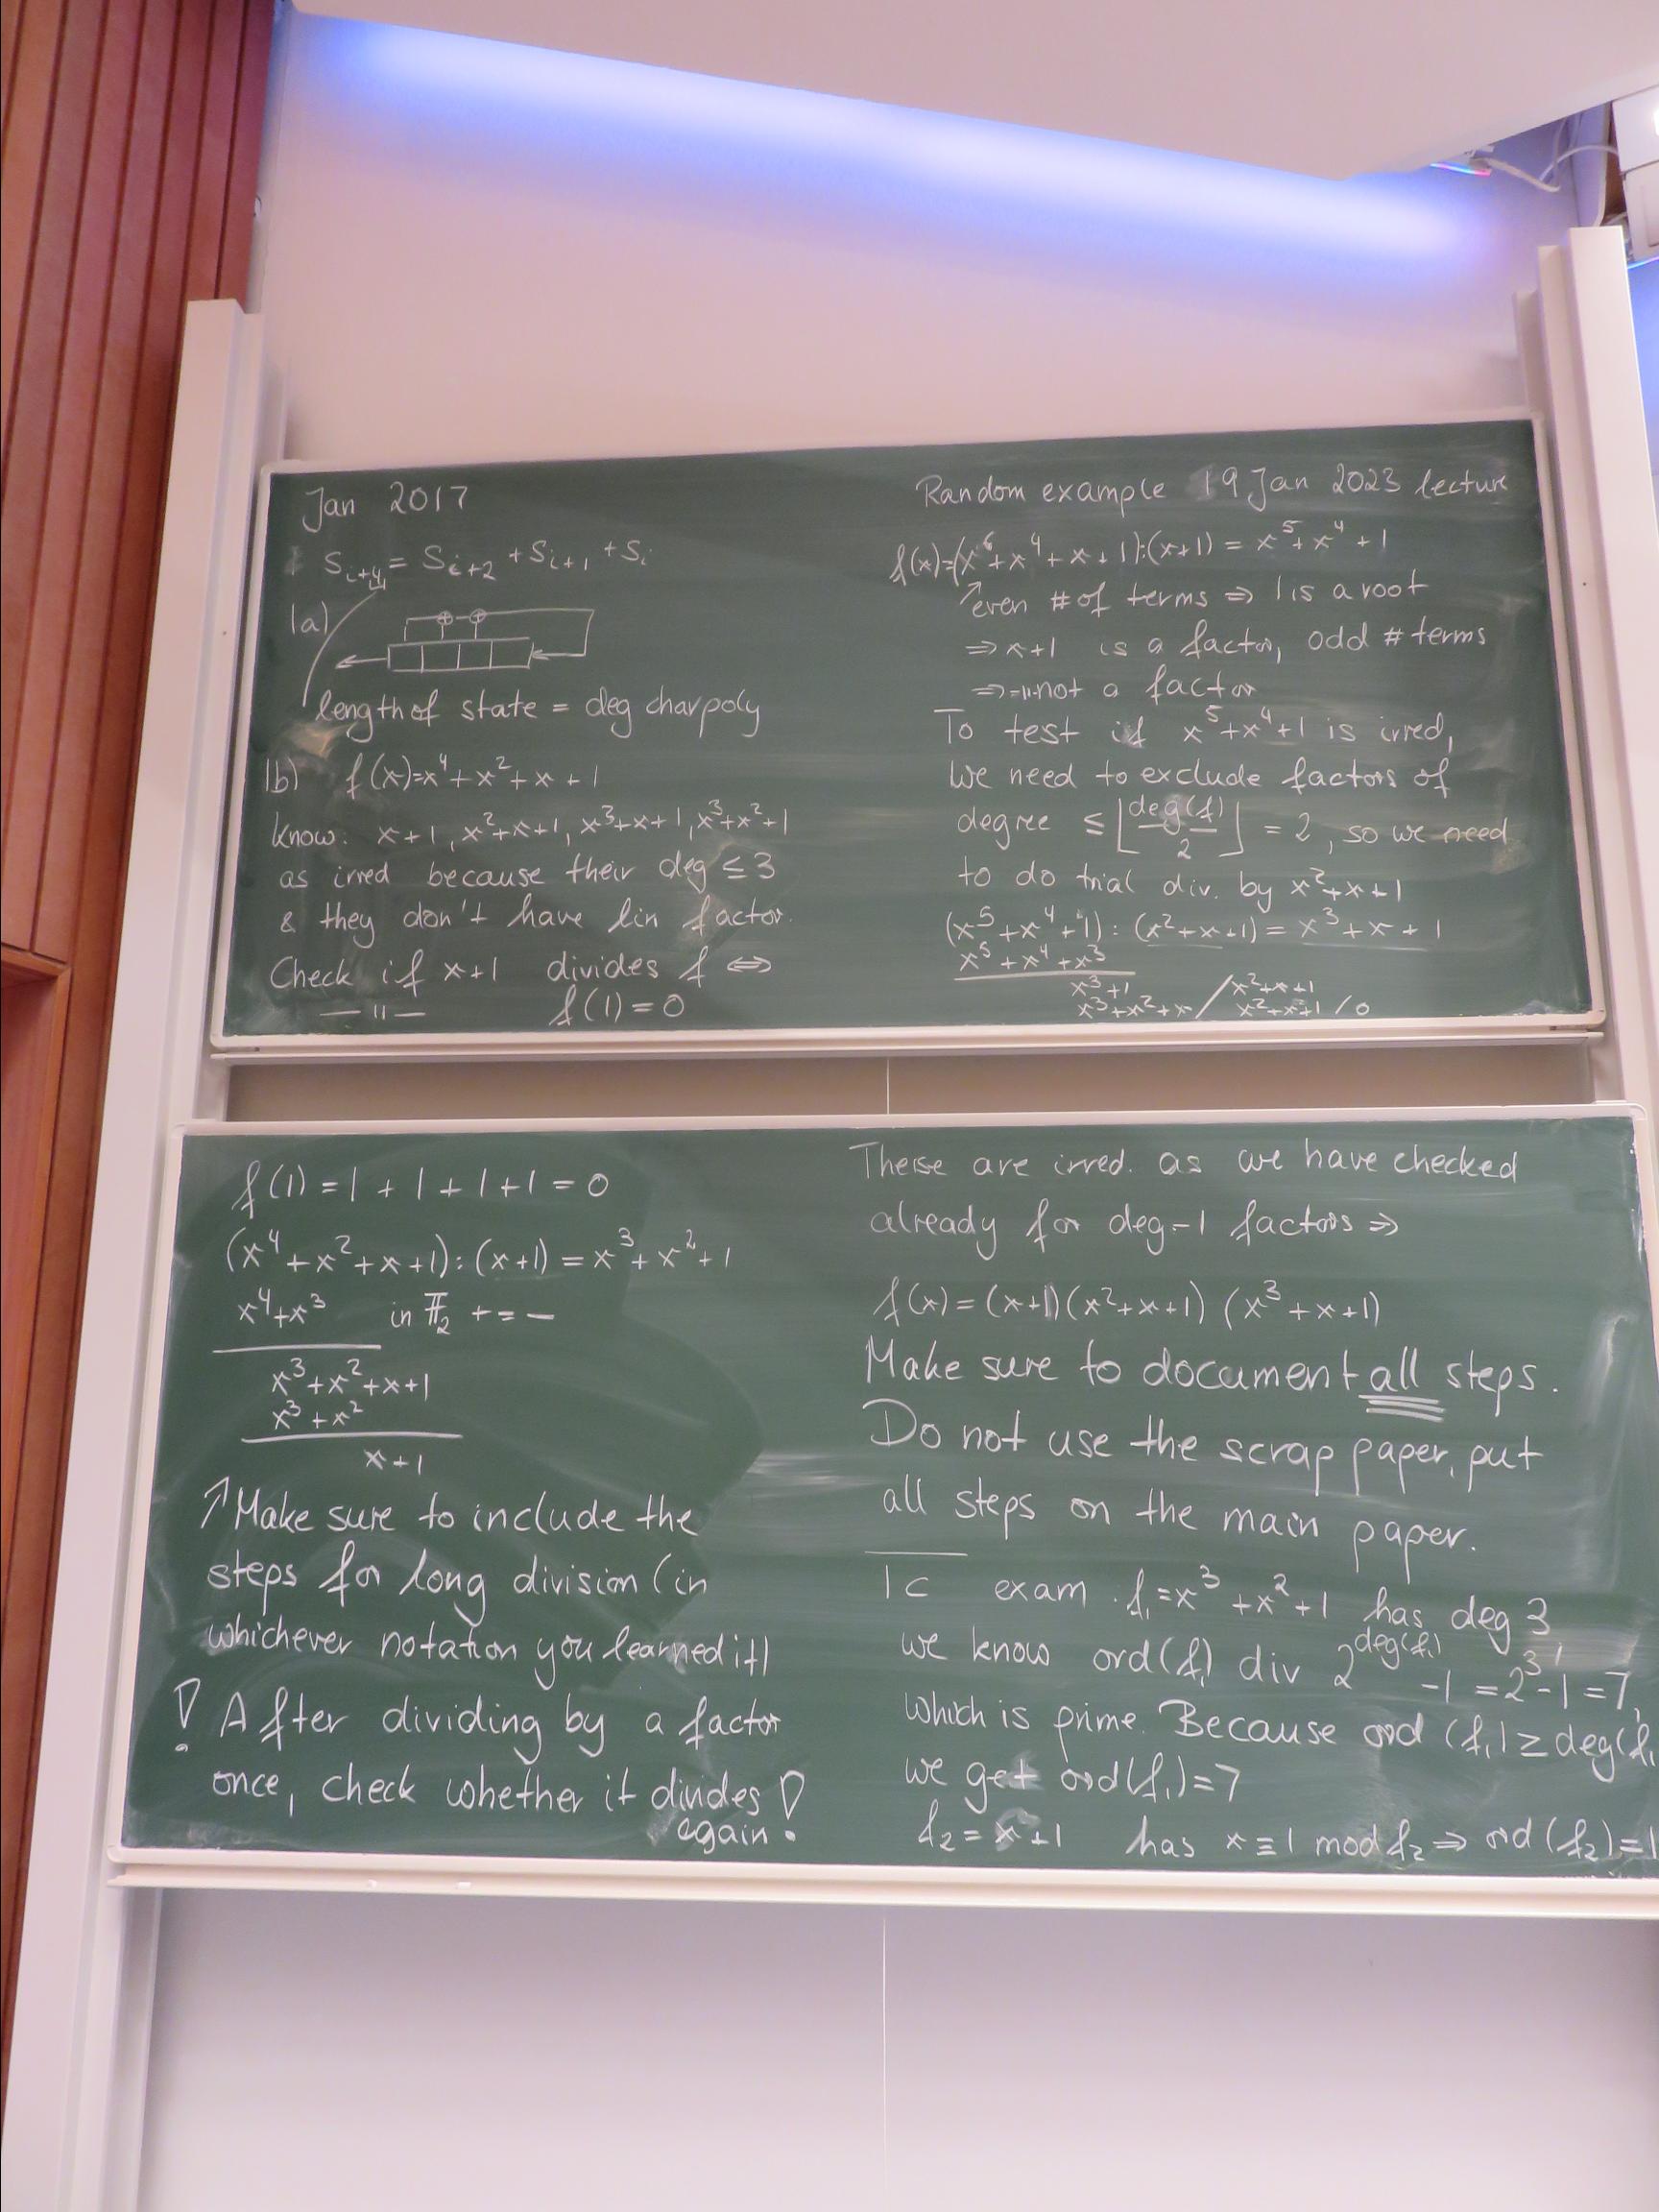 Jan 2017
S_{i+4} = S_{i+2} + S_{i+1} + S_i
1a)
length of state = deg charpoly
1b) f(x)=x⁴+x²+x+1
know: x+1, x²+x+1, x³+x+1, x³+x²+1
as irred because their deg ≤ 3
& they don't have lin factor.
Check if x+1 divides f ⇔
— " — f(1)=0
Random example 19 Jan 2023 lecture
f(x)=(x⁶+x⁴+x+1):(x+1) = x⁵+x⁴+1
↗even # of terms ⇒ 1 is a root
⇒ x+1 is a factor, odd # terms
⇒ -"- not a factor
To test if x⁵+x⁴+1 is irred,
we need to exclude factors of
degree ≤ ⌊deg(f)/2⌋ = 2, so we need
to do trial div. by x²+x+1
(x⁵+x⁴+1) : (x²+x+1) = x³+x+1
x⁵+x⁴+x³
x³+1 / x²+x+1
x³+x²+x / x²+x+1 / 0
f(1) = 1 + 1 + 1 + 1 = 0
(x⁴+x²+x+1):(x+1) = x³+x²+1
x⁴+x³ in F₂ + = −
x³+x²+x+1
x³+x²
x+1
↑Make sure to include the
steps for long division (in
whichever notation you learned it)
! After dividing by a factor
once, check whether it divides !
again
These are irred. as we have checked
already for deg-1 factors ⇒
f(x) = (x+1)(x²+x+1) (x³+x+1)
Make sure to document all steps.
Do not use the scrap paper, put
all steps on the main paper.
1c exam f₁=x³+x²+1 has deg 3,
we know ord(f₁) div 2^{deg(f₁)}-1 = 2³-1 = 7,
which is prime. Because ord(f₁) ≥ deg(f₁
we get ord(f₁)=7
f₂ = x+1 has x ≡ 1 mod f₂ ⇒ ord(f₂)=1